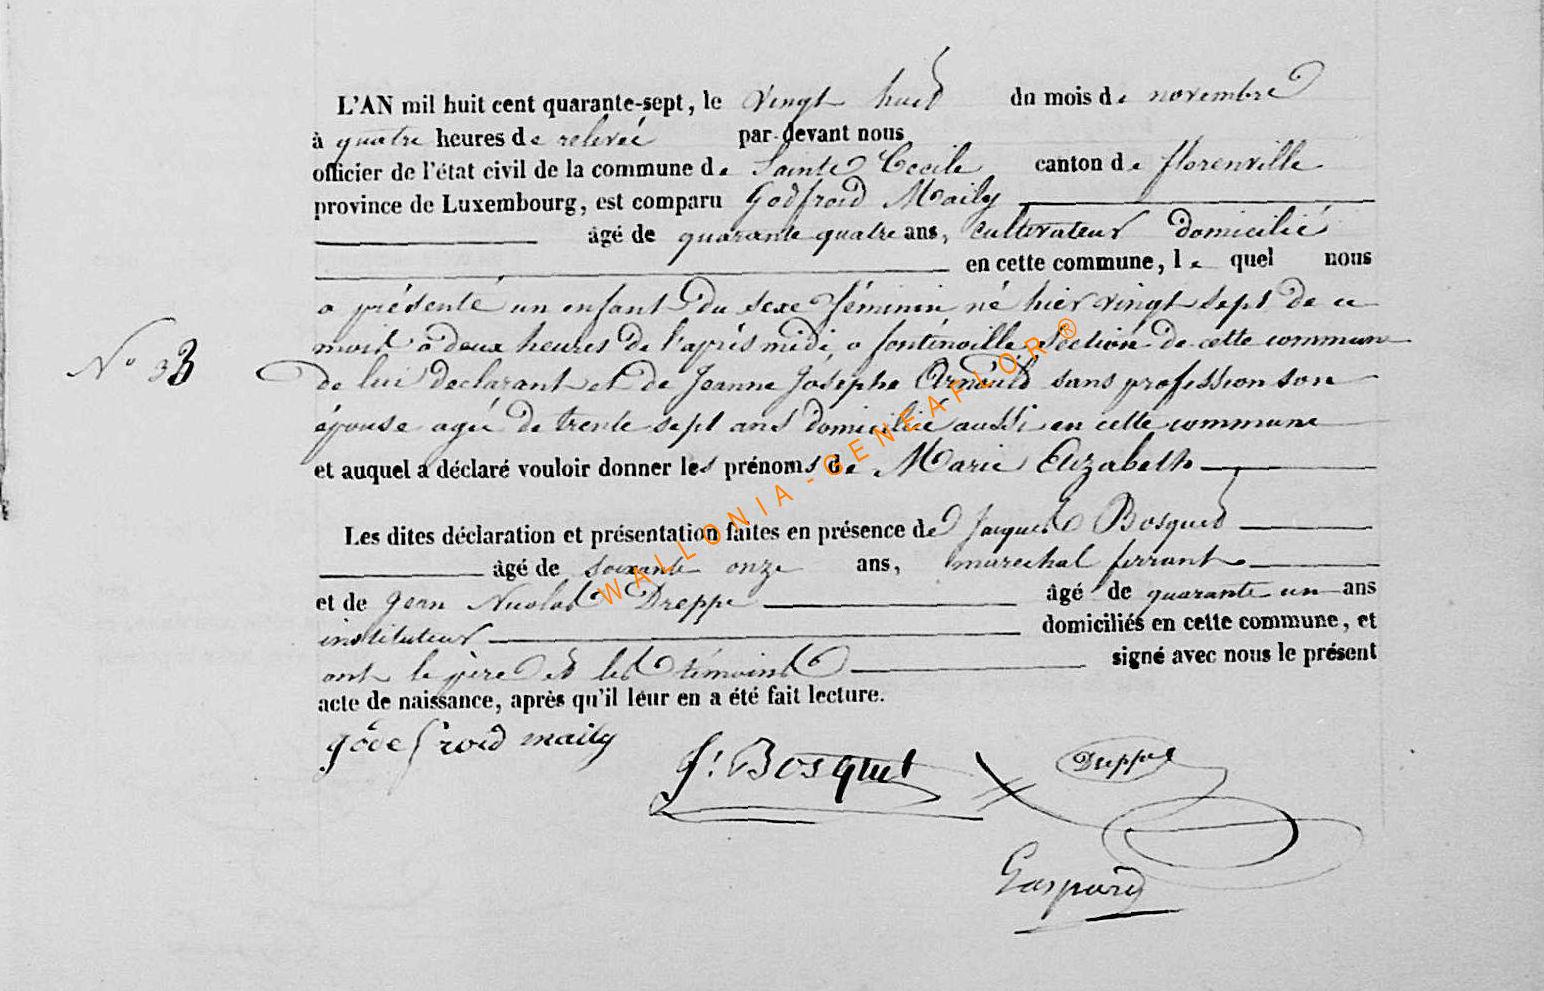 L'AN mil huit cent quarante-sept, le vingt huit du mois de novembre
à quatre heures de relevée par devant nous
officier de l'état civil de la commune de Sainte Cecile canton de florenville
province de Luxembourg, est comparu Godfroid Maily
âgé de quarante quatre ans, cultivateur domicilié
en cette commune, le quel nous
a présenté un enfant du sexe féminin né hier vingt sept de ce
mois à deux heures de l'après midi a fontenoille section de cette commune
N° 33 de lui declarant et de Jeanne Josephe Arnould sans profession son
épouse agée de trente sept ans domicilié aussi en cette commune
et auquel a déclaré vouloir donner les prénoms de Marie Elizabeth
Les dites déclaration et présentation faites en présence de Jacques Bosquet
âgé de soixante onze ans, marechal ferrant
et de Jean Nicolas Dreppe âgé de quarante un ans
instituteur domiciliés en cette commune, et
ont le père et les témoins signé avec nous le présent
acte de naissance, après qu'il leur en a été fait lecture.
godefroid maily
J. Bosquet Dreppe
Gaspard
WALLONIA-GENEAFLOR®